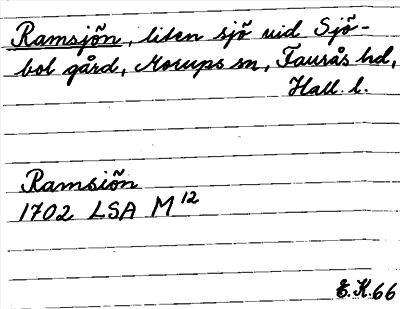 Ramsjön, liten sjö vid Sjö-
bol gård, Morups sn, Faurås hd,
Hall. l.
Ramsiön
1702 LSA M 12
E.K. 66